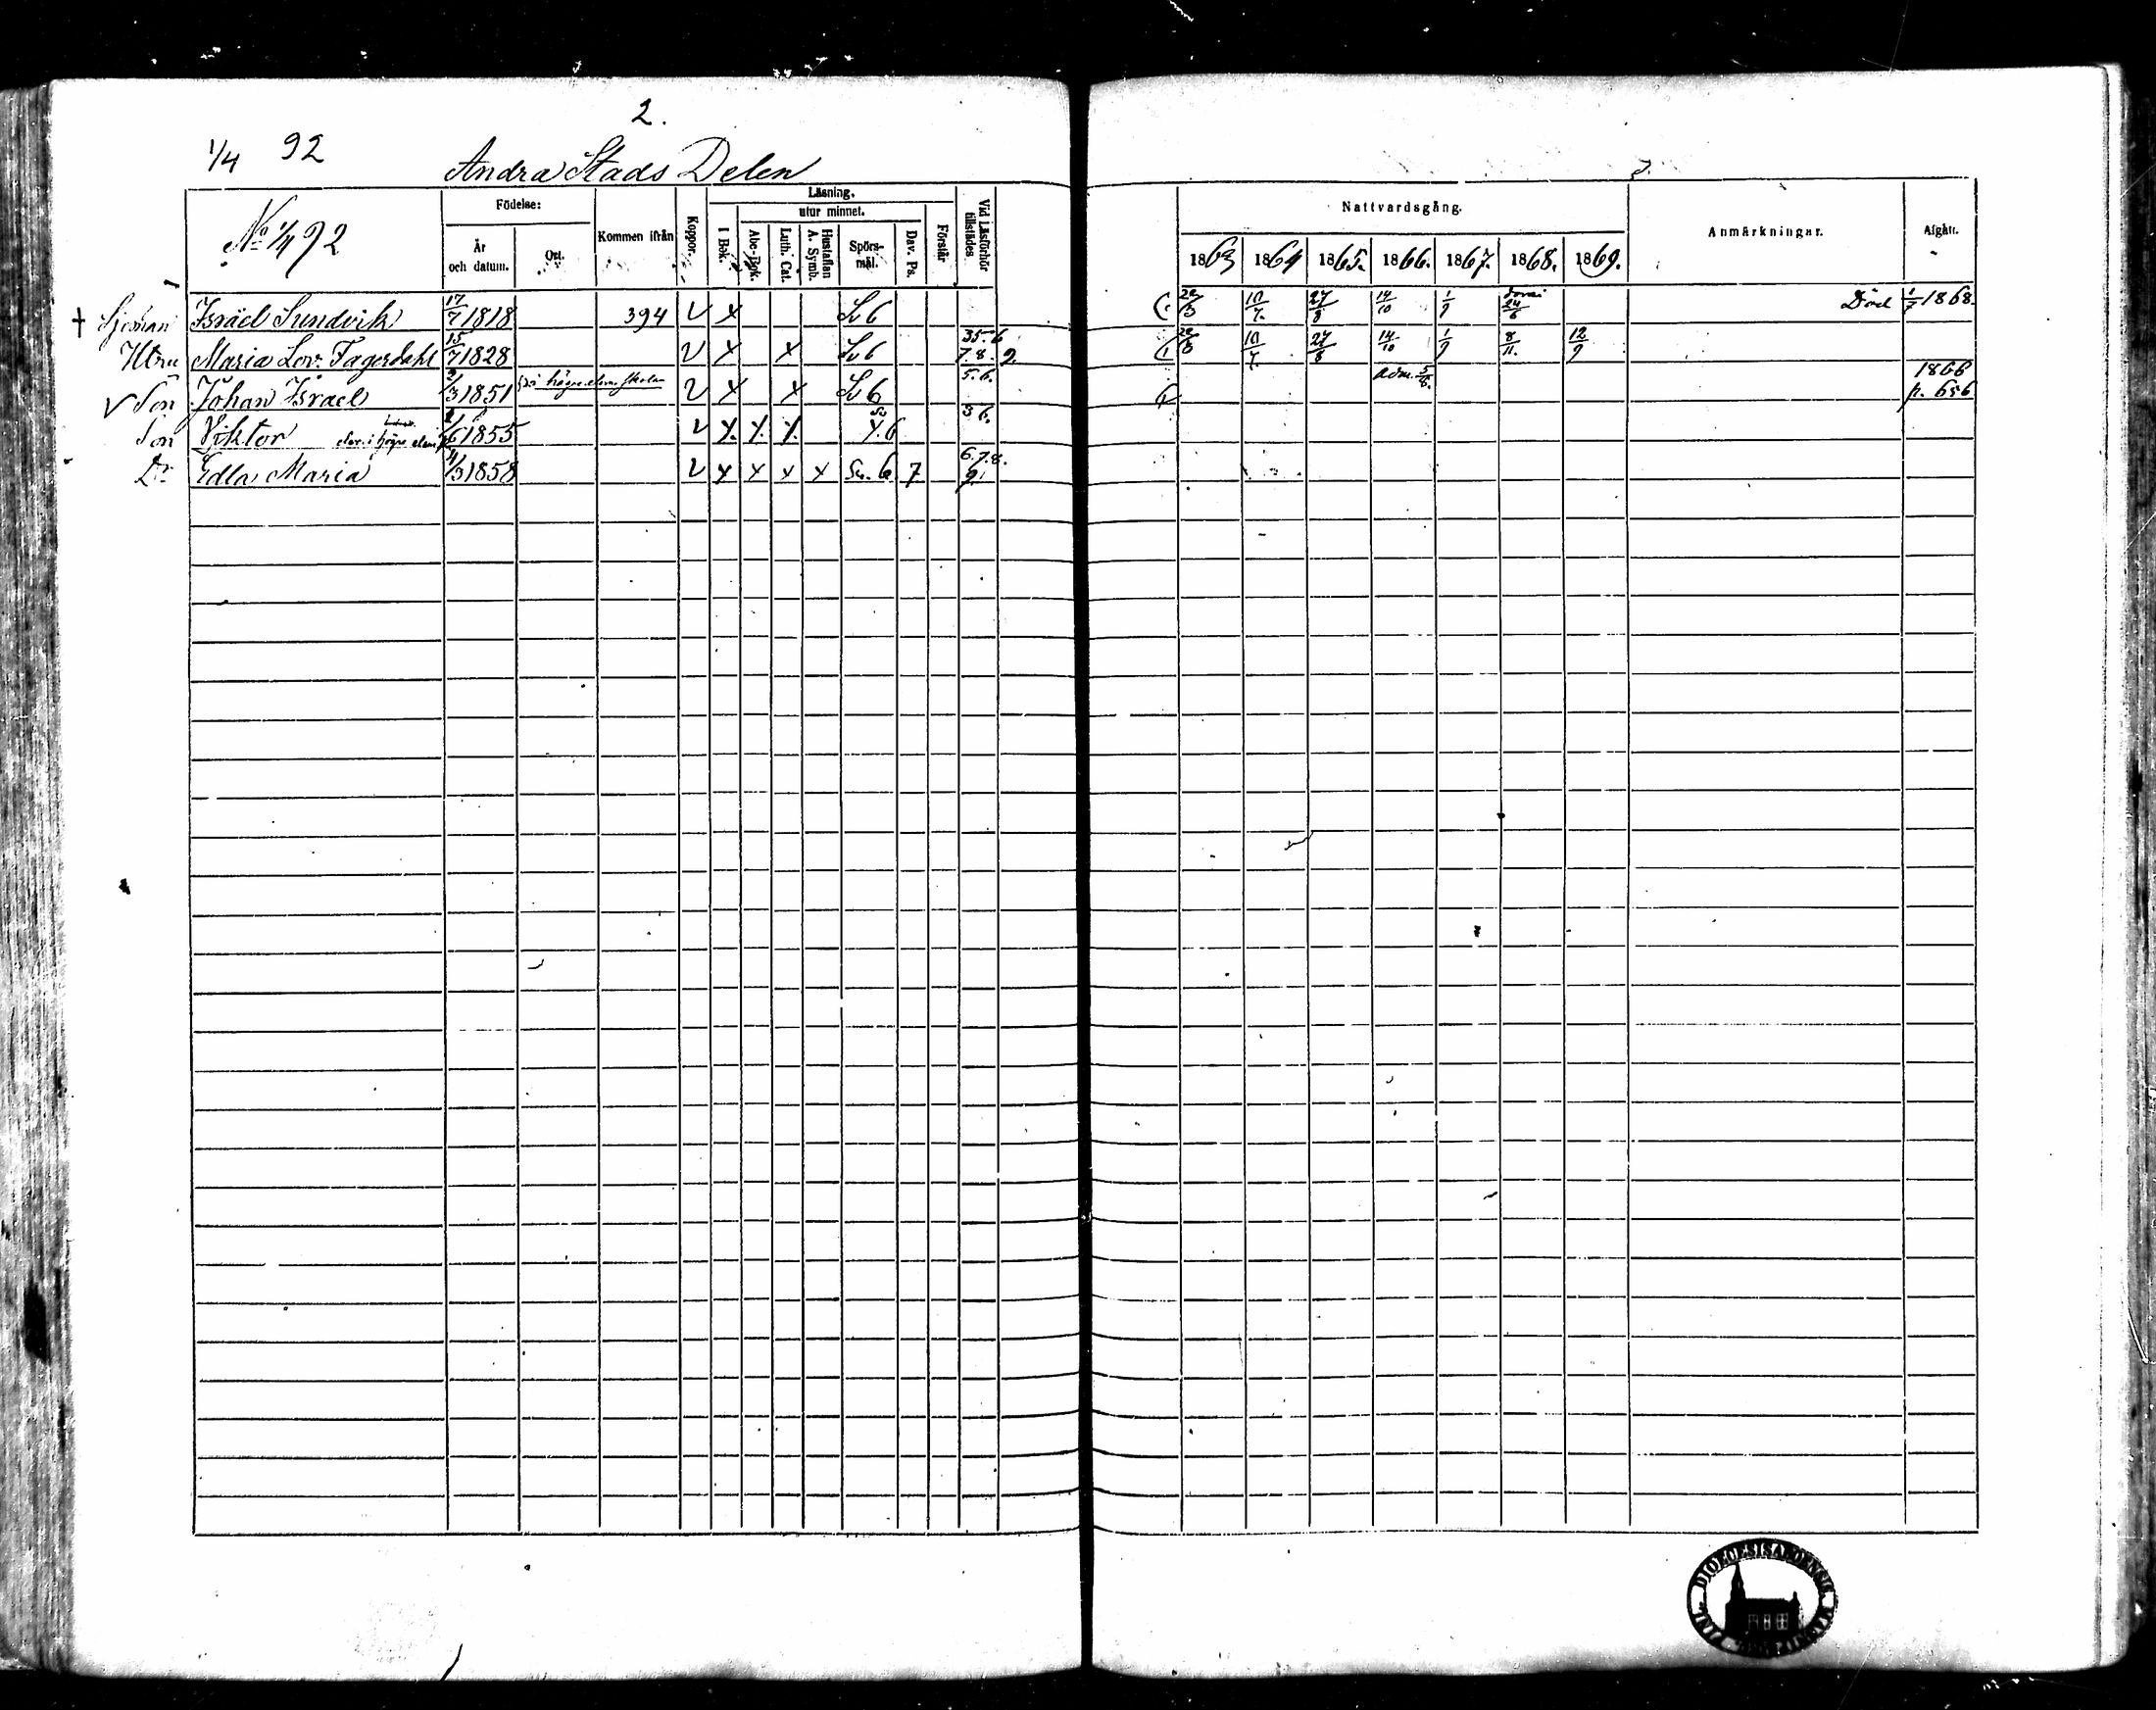 2.
1/4 92
Andra Stads Delen
No 1/4 92
Födelse:
År och datum.
Ort.
Kommen ifrån
Koppor.
Läsning.
I Bok.
utur minnet.
Abc-Bok.
Luth. Cat.
Hustaflan A. Symb.
Spörs-mål.
Dav. Ps.
Förstår
Vid Läsförhör tillstädes
Nattvardsgång.
1863 1864 1865. 1866. 1867. 1868. 1869.
Anmärkningar.
Afgått.
† Sjöman Israel Sundvik 17/7 1818 394 V X Sv 6 22/3 10/7. 27/8 14/10 1/9 24/6 Död 1/7 1868.
Hstru Maria Lov. Fagerdahl 15/7 1828 V X X Sv 6 35.6 7.8. 9. 22/3 10/7. 27/8 14/10 1/9 8/11. 12/9
V Son Johan Israel 2/3 1851 i högre elem. skolan V X X Sv 6 5.6. adm. 5/8. 1866 p. 656
Son Viktor elev. i högre elem. /6 1855 V X. X. X. X. 6 36.
Dr Edla Maria 4/3 1858 V X X X X Sv. 6 7 6.7.8. 9.